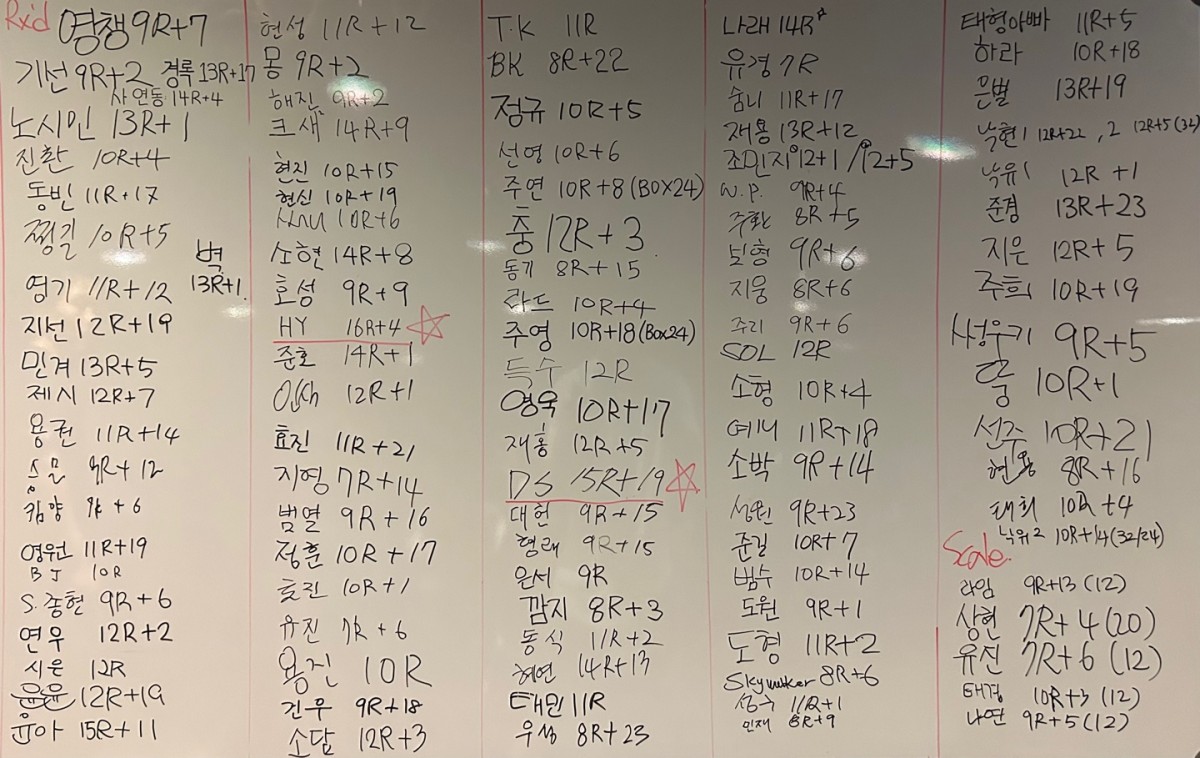 Rx'd
영쟁 9R+7
기선 9R+2
경록 13R+17
사연동 14R+4
노시민 13R+1
진환 10R+4
동빈 11R+17
찡긴 10R+5
벽 13R+1
영기 11R+12
지선 12R+19
민겨 13R+5
제시 12R+7
용권 11R+14
9R+12
9R+6
영원 11R+19
BJ 10R
S.종현 9R+6
연우 12R+2
시은 12R
12R+19
윤아 15R+11
현성 11R+12
몽 9R+2
해진 9R+2
크새 14R+9
현진 10R+15
현신 10R+19
10R+6
소현 14R+8
호성 9R+9
HY 16R+4
준호 14R+1
12R+1
효진 11R+21
지영 7R+14
범열 9R+16
정훈 10R+17
효진 10R+1
유진 7R+6
용진 10R
건우 9R+18
소담 12R+3
T.K 11R
BK 8R+22
정규 10R+5
선영 10R+6
주연 10R+8 (BOX24)
충 12R+3
동기 8R+15
라드 10R+4
주영 10R+18 (Box24)
득수 12R
영욱 10R+17
재홍 12R+5
DS 15R+19
대헌 9R+15
형래 9R+15
은서 9R
깜지 8R+3
동식 11R+2
혜연 14R+13
태민 11R
우성 8R+23
나래 14R
유경 7R
숨니 11R+17
재용 13R+12
조민지 12+1 / 12+5
W.P. 9R+4
주환 8R+5
보형 9R+6
지웅 8R+6
주리 9R+6
SOL 12R
소형 10R+4
예니 11R+18
소박 9R+14
성원 9R+23
준길 10R+7
범수 10R+14
도원 9R+1
도경 11R+2
Skywalker 8R+6
성수 11R+1
민재 8R+9
태형아빠 11R+5
하라 10R+18
은별 13R+19
낙현1 12R+22, 2 12R+5 (32)
낙유1 12R+1
준경 13R+23
지은 12R+5
주희 10R+19
사성우기 9R+5
홍 10R+1
선주 10R+21
현용 8R+16
태희 10R+4
낙위2 10R+14 (32/24)
Scale
라임 9R+13 (12)
상현 7R+4 (20)
유진 7R+6 (12)
태경 10R+3 (12)
나연 9R+5 (12)